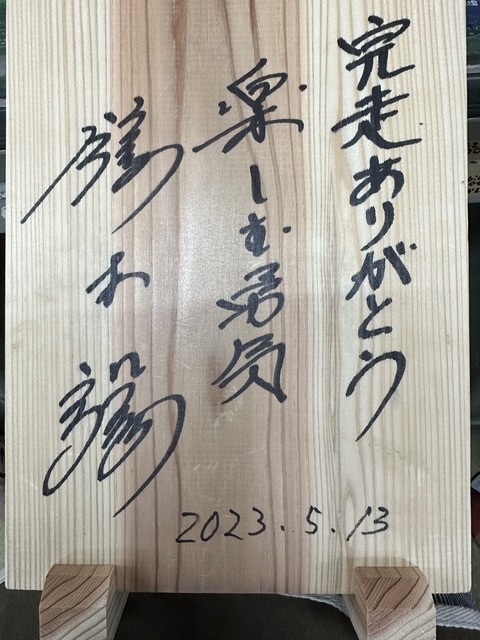 完走ありがとう
楽しむ勇気
2023.5.13